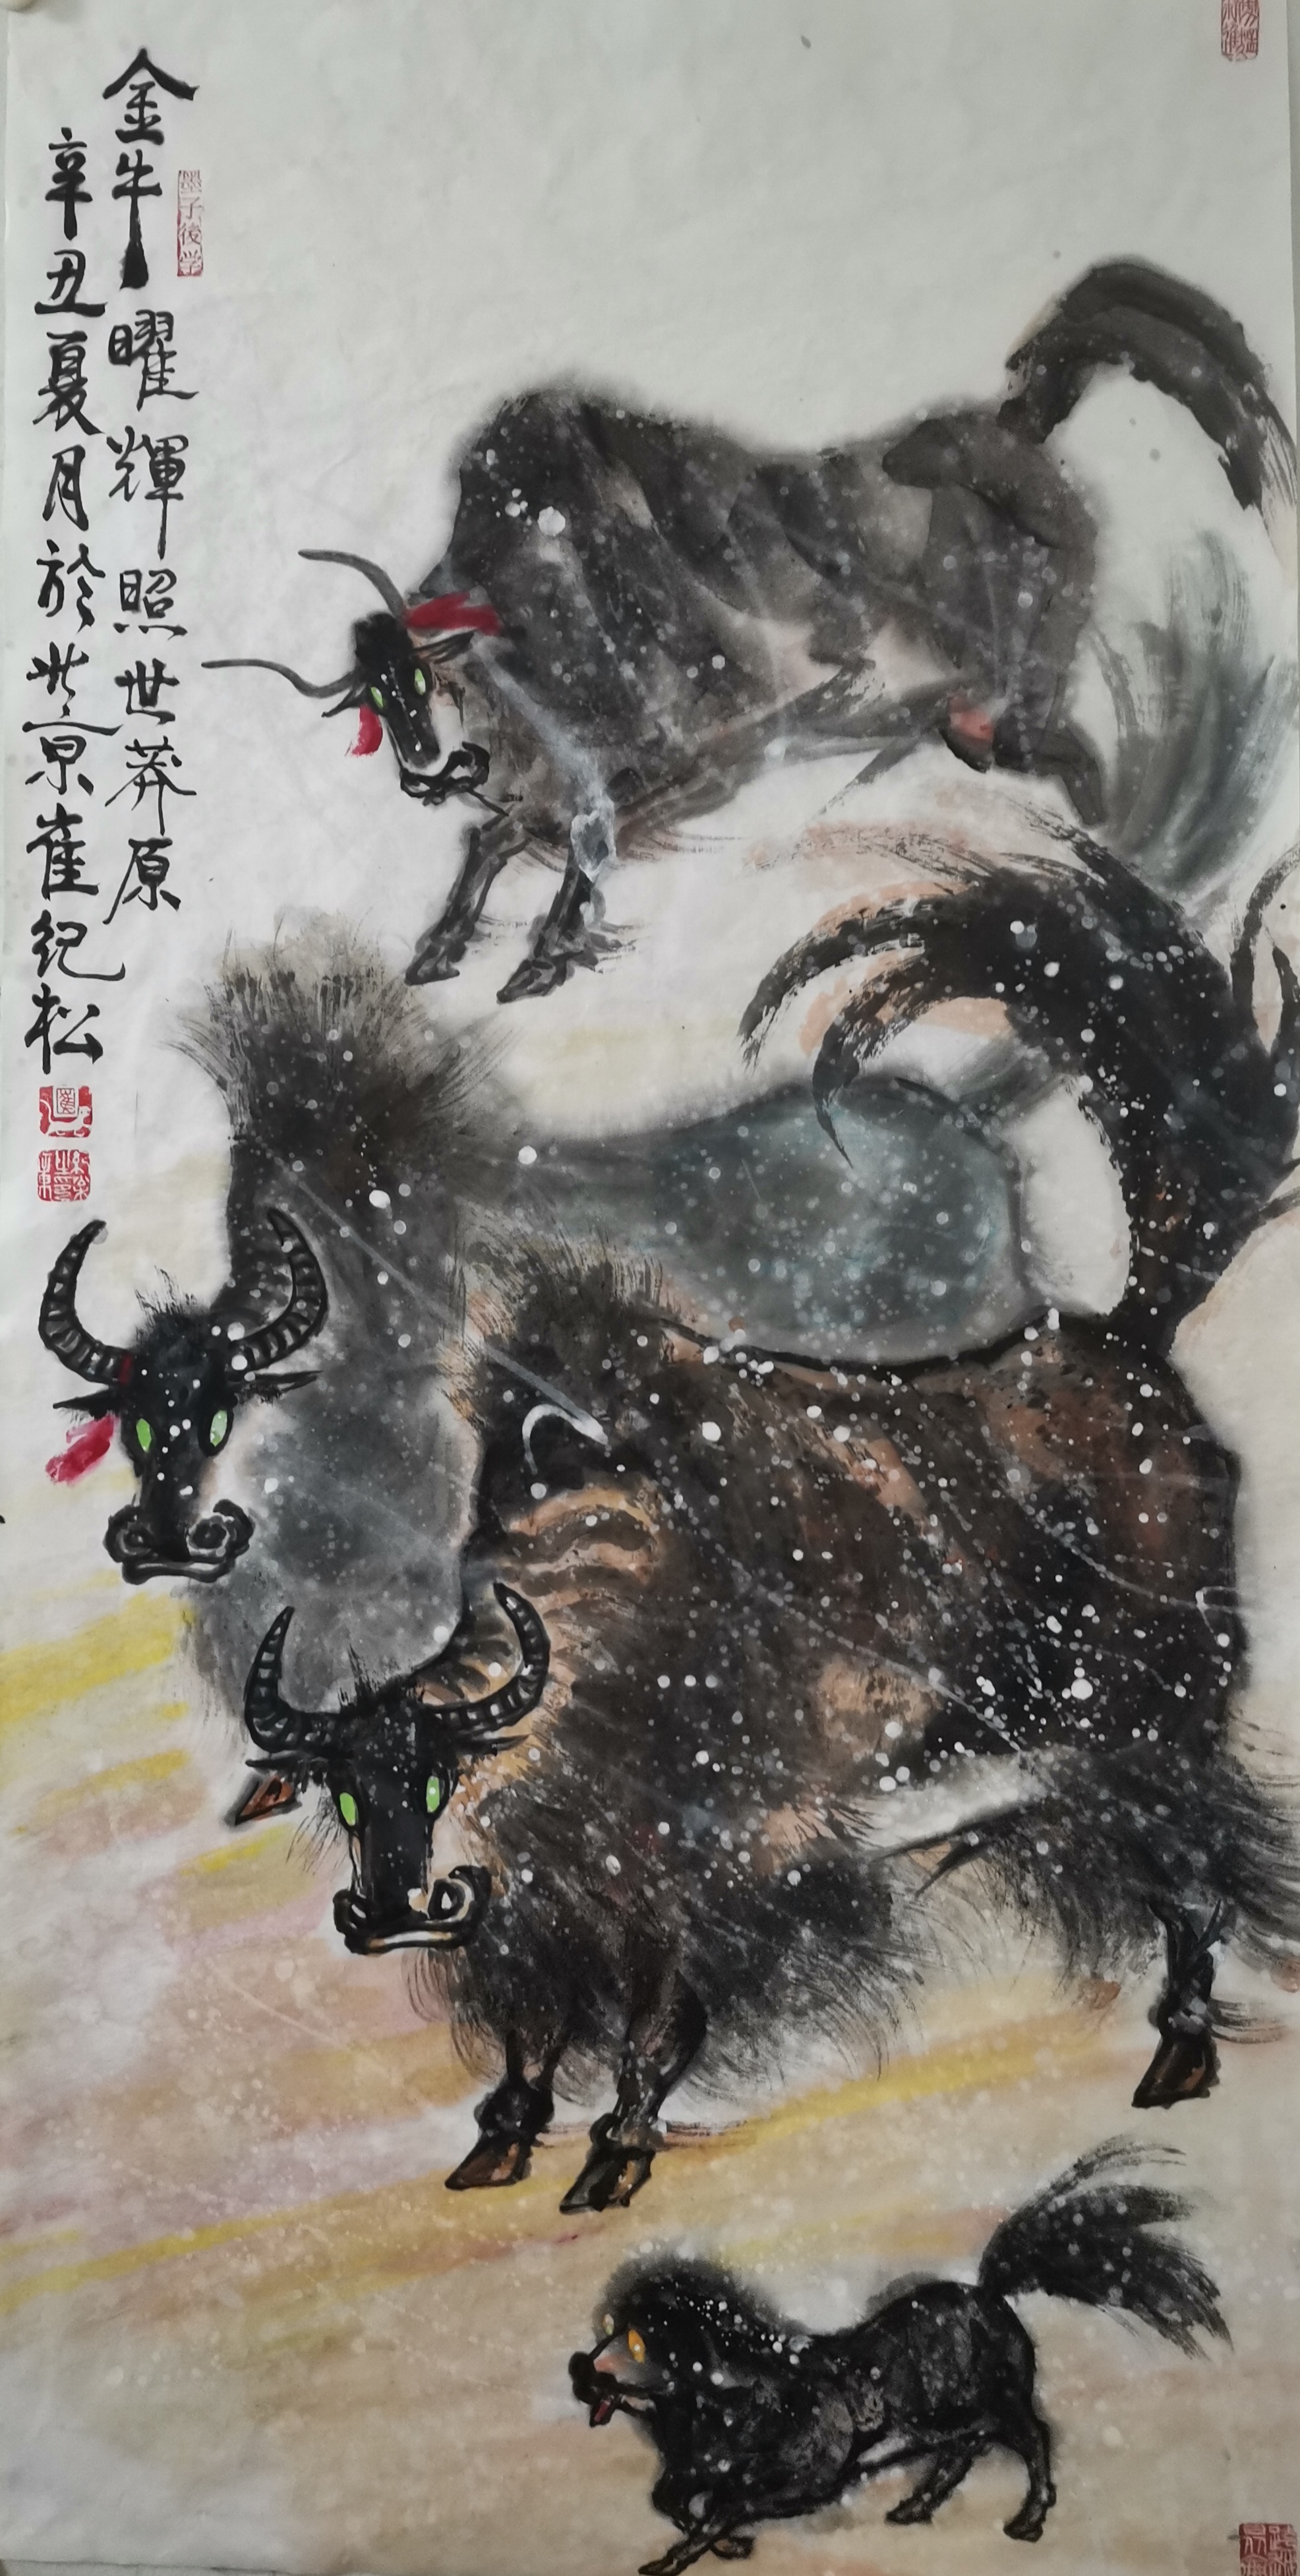 金牛曜輝照世莽原
辛丑夏月於北京崔纪松
墨子後学